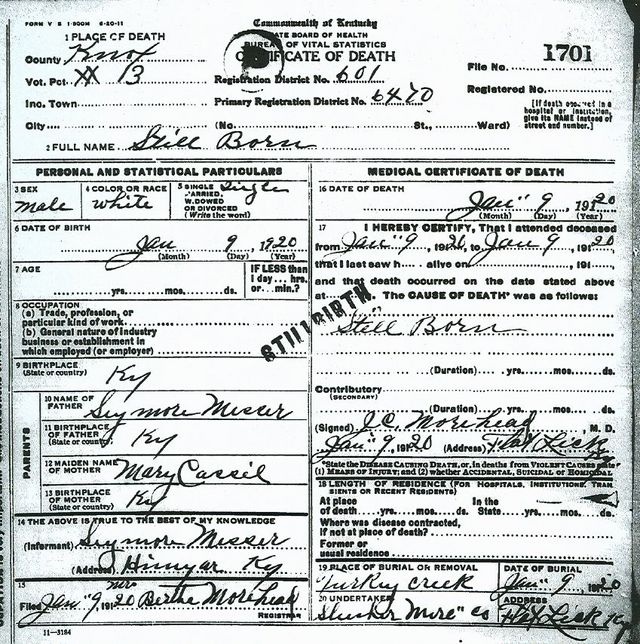 FORM V S 1-500M 6-20-11
Commonwealth of Kentucky
STATE BOARD OF HEALTH
BUREAU OF VITAL STATISTICS
CERTIFICATE OF DEATH
1 PLACE OF DEATH
County Knox
Vot. Pct. XX 13
Inc. Town
City (No. St., Ward)
Registration District No. 601
Primary Registration District No. 6470
File No. 1701
Registered No.
[If death occurred in a hospital or institution, give its NAME instead of street and number.]
2 FULL NAME Still Born
PERSONAL AND STATISTICAL PARTICULARS
3 SEX male
4 COLOR OR RACE white
5 SINGLE, MARRIED, WIDOWED OR DIVORCED (Write the word) Single
6 DATE OF BIRTH
Jan 9 1920
(Month) (Day) (Year)
7 AGE
yrs. mos. ds.
IF LESS than 1 day... hrs. or... min.?
8 OCCUPATION
(a) Trade, profession, or particular kind of work
(b) General nature of industry business or establishment in which employed (or employer)
9 BIRTHPLACE
(State or country) Ky
PARENTS
10 NAME OF FATHER Seymore Messer
11 BIRTHPLACE OF FATHER (State or country) Ky
12 MAIDEN NAME OF MOTHER Mary Cassil
13 BIRTHPLACE OF MOTHER (State or country) Ky
14 THE ABOVE IS TRUE TO THE BEST OF MY KNOWLEDGE
(Informant) Seymore Messer
(Address) Hinyar Ky.
15
Filed Jan 9, 1920 Mrs Birtha Morehead
REGISTRAR
11-3184
MEDICAL CERTIFICATE OF DEATH
16 DATE OF DEATH
Jan" 9 1920
(Month) (Day) (Year)
17 I HEREBY CERTIFY, That I attended deceased
from Jan" 9, 1920, to Jan 9, 1920
that I last saw h alive on , 191
and that death occurred on the date stated above
at m. The CAUSE OF DEATH* was as follows:
STILLBIRTH
Still Born
(Duration) yrs. mos. ds.
Contributory
(SECONDARY)
(Duration) yrs. mos. ds.
(Signed) J.C. Morehead, M. D.
Jan" 9, 1920 (Address) Flat Lick Ky
*State the DISEASE CAUSING DEATH, or, in deaths from VIOLENT CAUSES state
(1) MEANS OF INJURY; and (2) whether ACCIDENTAL, SUICIDAL or HOMICIDAL
18 LENGTH OF RESIDENCE (FOR HOSPITALS, INSTITUTIONS, TRANSIENTS OR RECENT RESIDENTS)
At place of death yrs. mos. ds.
In the State yrs. mos. ds.
Where was disease contracted, if not at place of death?
Former or usual residence
19 PLACE OF BURIAL OR REMOVAL
Turkey Creek
DATE OF BURIAL
Jan" 9, 1920
20 UNDERTAKER
ADDRESS
Flat Lick Ky